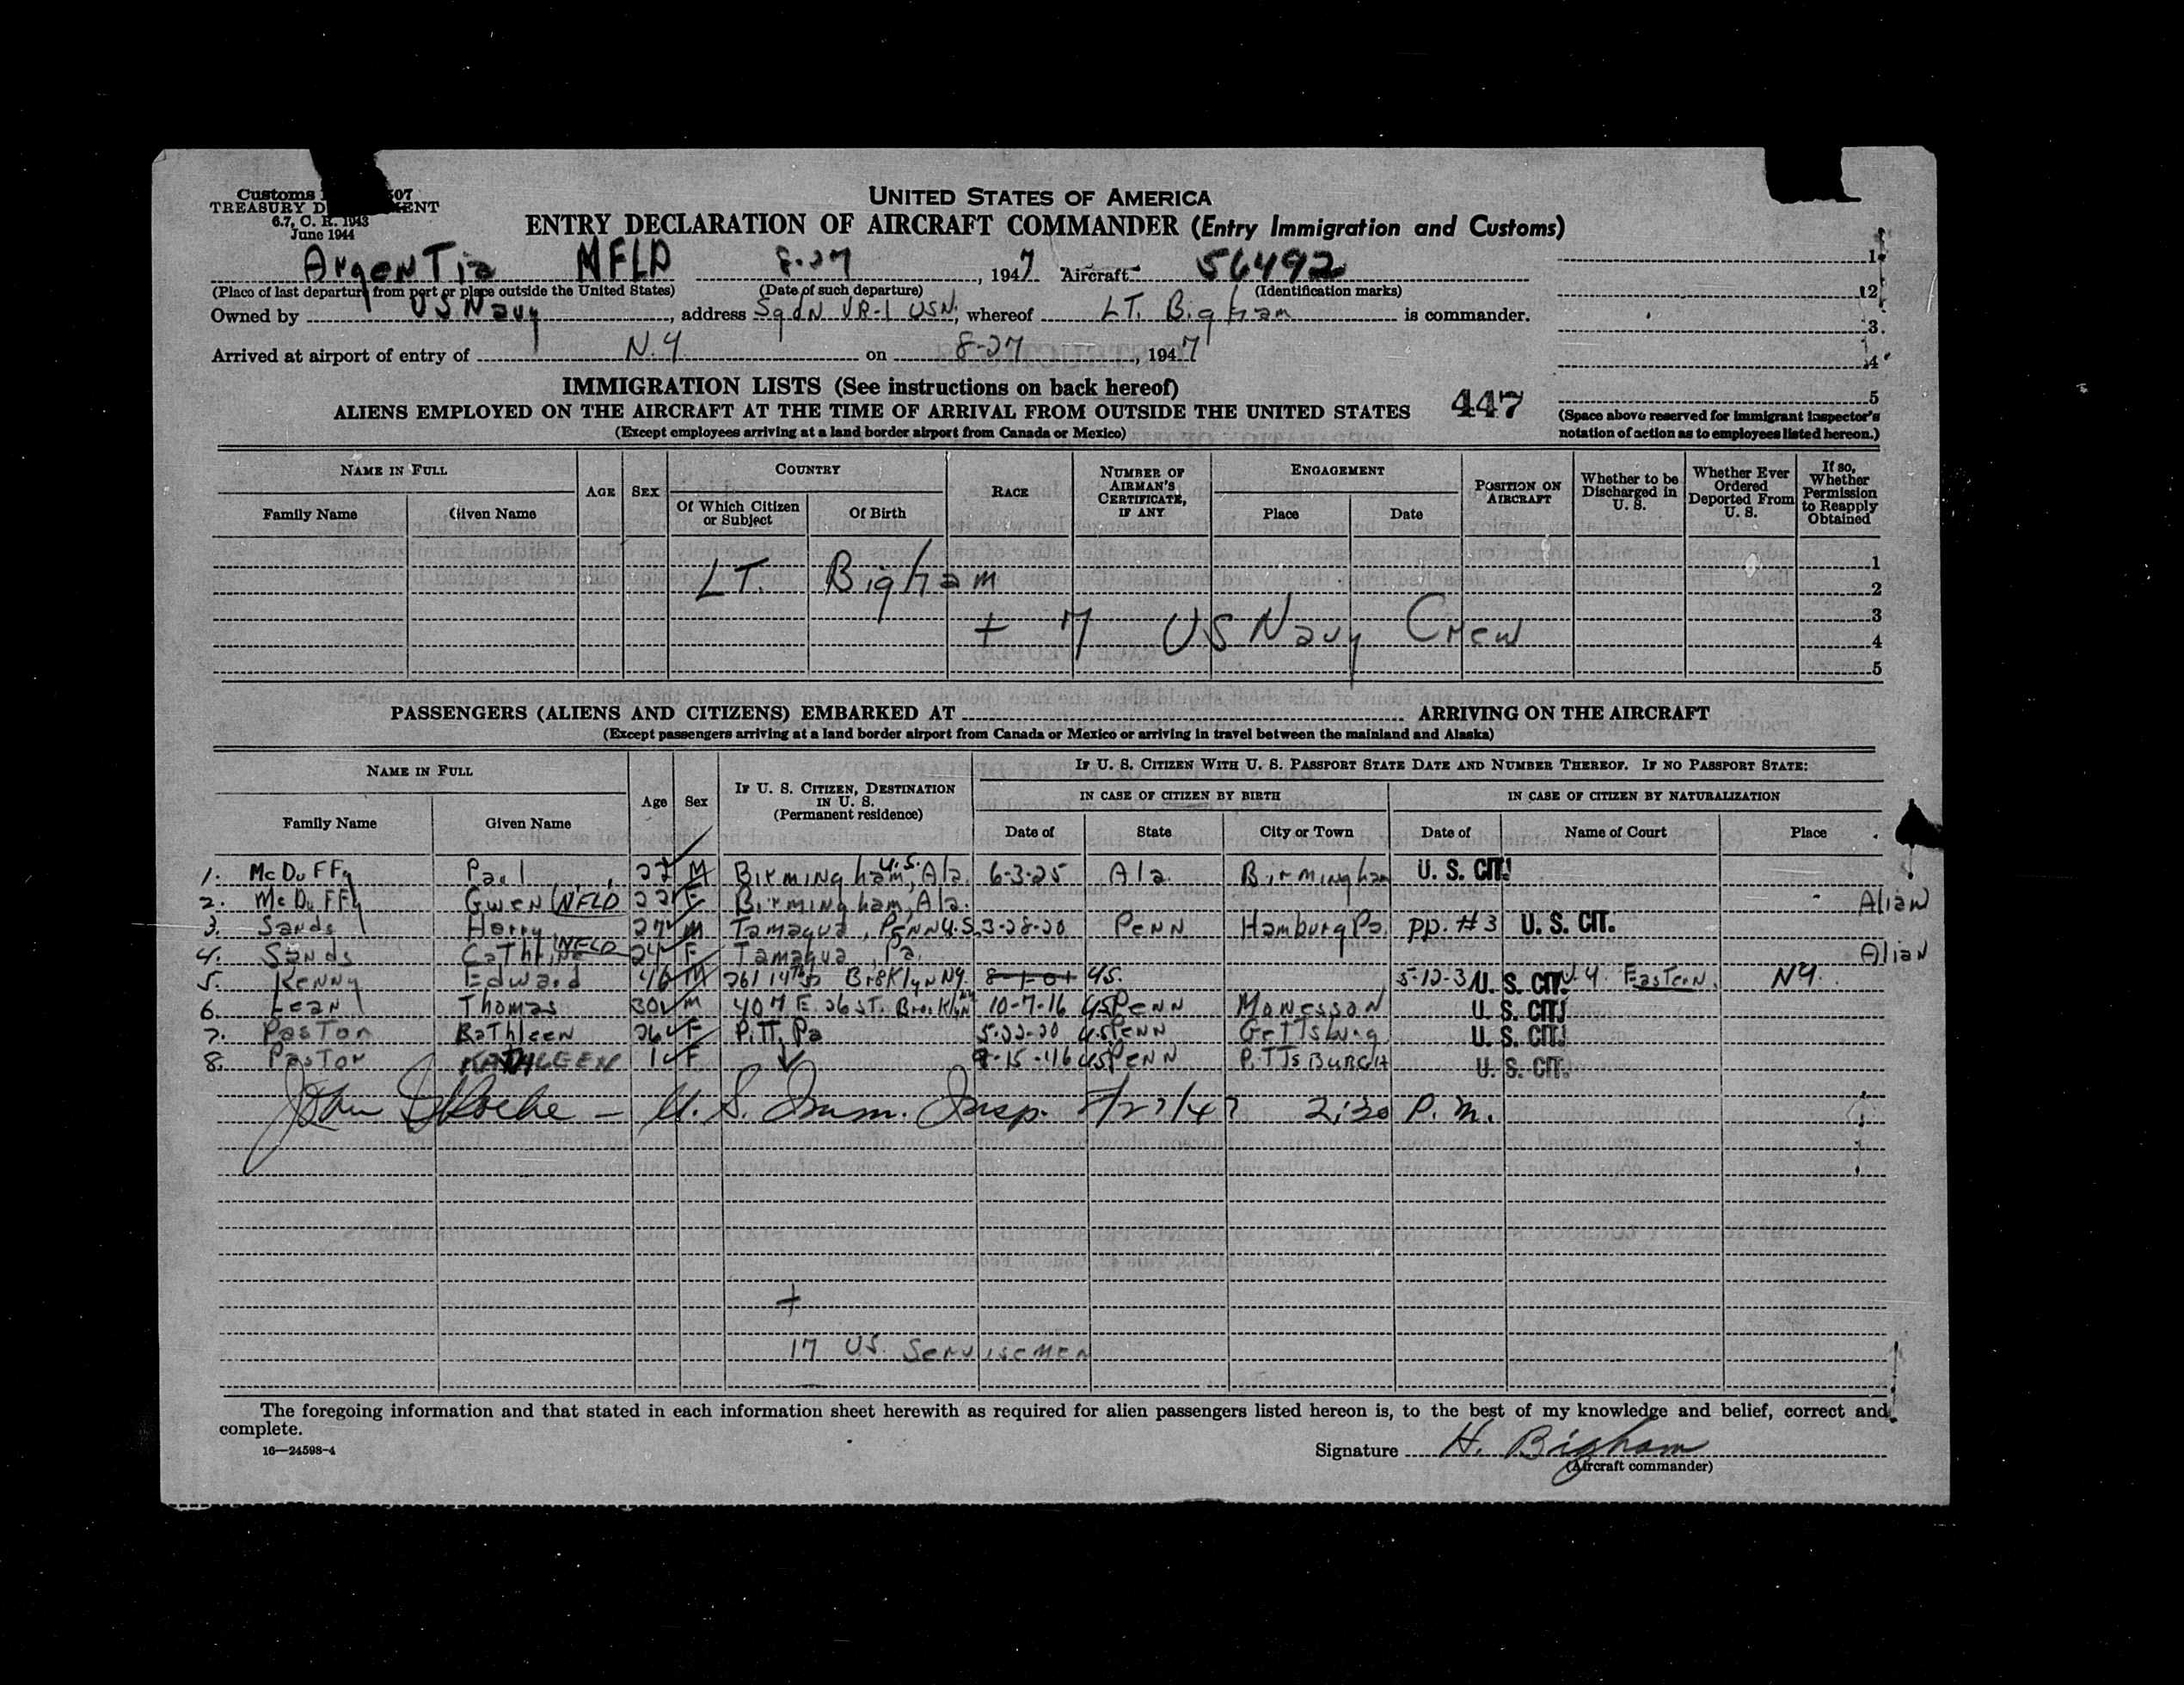 Customs 507
TREASURY DEPARTMENT
6.7, C. R. 1943
June 1944
UNITED STATES OF AMERICA
ENTRY DECLARATION OF AIRCRAFT COMMANDER (Entry Immigration and Customs)
Argentia NFLD 8-27, 1947 Aircraft 56492
(Place of last departure from port or place outside the United States) (Date of such departure) (Identification marks)
Owned by US Navy, address Sqdn VR-1 USN; whereof LT. Bigham is commander.
Arrived at airport of entry of N.Y on 8-27, 1947
1
2
3
4
5
(Space above reserved for immigrant inspector's notation of action as to employees listed hereon.)
IMMIGRATION LISTS (See instructions on back hereof)
ALIENS EMPLOYED ON THE AIRCRAFT AT THE TIME OF ARRIVAL FROM OUTSIDE THE UNITED STATES 447
(Except employees arriving at a land border airport from Canada or Mexico)
NAME IN FULL AGE SEX COUNTRY RACE NUMBER OF AIRMAN'S CERTIFICATE, IF ANY ENGAGEMENT POSITION ON AIRCRAFT Whether to be Discharged in U. S. Whether Ever Ordered Deported From U. S. If so, Whether Permission to Reapply Obtained
Family Name Given Name Of Which Citizen or Subject Of Birth Place Date
1
LT. Bigham
2
3
+ 7 US Navy Crew
4
5
PASSENGERS (ALIENS AND CITIZENS) EMBARKED AT ARRIVING ON THE AIRCRAFT
(Except passengers arriving at a land border airport from Canada or Mexico or arriving in travel between the mainland and Alaska)
NAME IN FULL Age Sex IF U. S. CITIZEN, DESTINATION IN U. S. (Permanent residence) IF U. S. CITIZEN WITH U. S. PASSPORT STATE DATE AND NUMBER THEREOF. IF NO PASSPORT STATE:
IN CASE OF CITIZEN BY BIRTH IN CASE OF CITIZEN BY NATURALIZATION
Family Name Given Name Date of State City or Town Date of Name of Court Place
1. McDuffy Paul 22 M Birmingham, Ala. U.S. 6-3-25 Ala Birmingham U. S. CIT.
2. McDuffy Gwen NFLD 22 F Birmingham, Ala. Alian
3. Sands Harry 27 M Tamaqua, Penn U.S. 3-28-20 Penn Hamburg Pa. pp. #3 U. S. CIT.
4. Sands Cathrine NFLD 24 F Tamaqua, Pa. Alian
5. Kenny Edward 46 M 261 14th St Brooklyn NY 8-1-01 US. 5-12-31 U. S. CIT. N.Y Eastern. NY.
6. Lean Thomas 30 M 407 E. 26 ST. Brooklyn NY 10-7-16 US Penn Monesson U. S. CIT.
7. Pastor Kathleen 26 F Pitt. Pa 5-22-20 U.S Penn Gettsburg U. S. CIT.
8. Pastor KATHLEEN 1 F 9-15-46 US Penn PITTSBURGH U. S. CIT.
John Roche - U. S. Imm. Insp. 8/27/47 2:30 P. M.
+
17 US. Servisemen
The foregoing information and that stated in each information sheet herewith as required for alien passengers listed hereon is, to the best of my knowledge and belief, correct and
complete.
16—24598-4
Signature H. Bigham
(Aircraft commander)